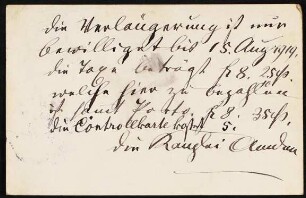 die Verlängerung ist nur
bewilliget bis 15. Aug 1914,
die Taxe beträgt K 8. 25 h,
welche hier zu bezahlen
ist samt Porto K 8. 35 h,
die Controllkarte kostet 5.
die Kanzlei